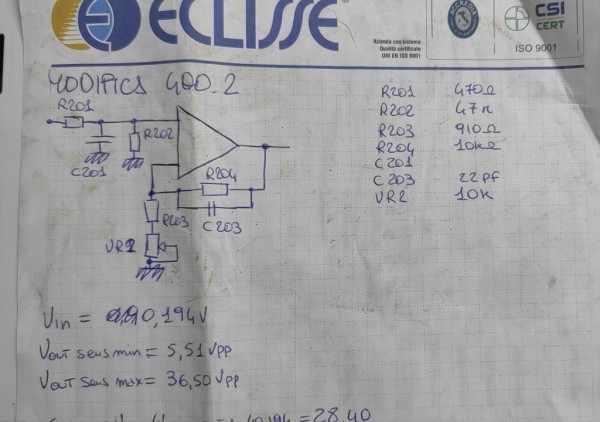 ECLISSE
Azienda con sistema
Qualità certificato
UNI EN ISO 9001
CSI
CERT
ISO 9001
MODIFICS 400.2
R201
R202
C201
R204
R203
C203
VR2
R201 470Ω
R202 47K
R203 910Ω
R204 10KΩ
C201
C203 22pf
VR2 10K
Vin = 0,194V
Vout sens min = 5,51Vpp
Vout sens max = 36,50Vpp
= 28.40